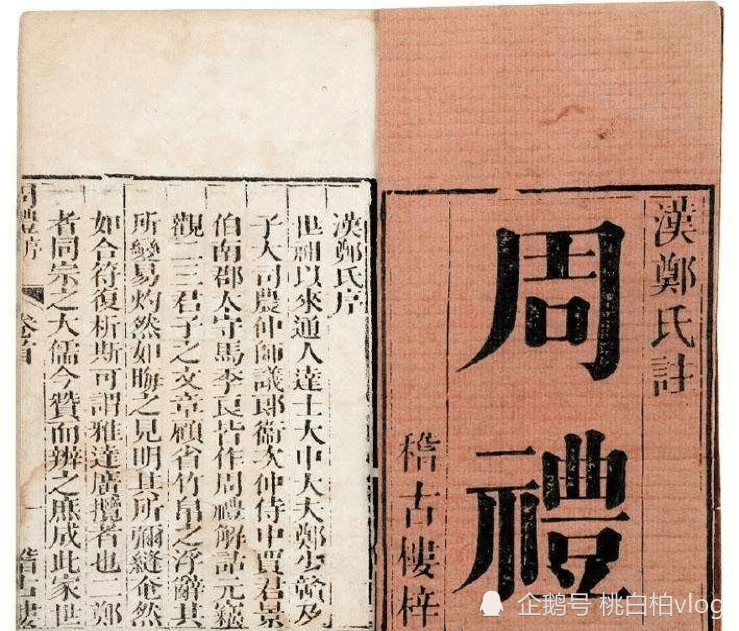 漢鄭氏註
周禮
稽古樓梓
漢鄭氏序
世祖以來通人達士大中大夫鄭少贛及
子大司農仲師議郎衛次仲侍中賈君景
伯南郡太守馬季良皆作周禮解詁元竊
觀二三君子之文章顧省竹帛之浮辭其
所變易灼然如晦之見明其所彌縫奄然
如合符復析斯可謂雅達廣攬者也二鄭
者同宗之大儒今贊而辨之庶成此家世
周禮序 卷首 一 稽古樓
企鹅号 桃白柏vlog